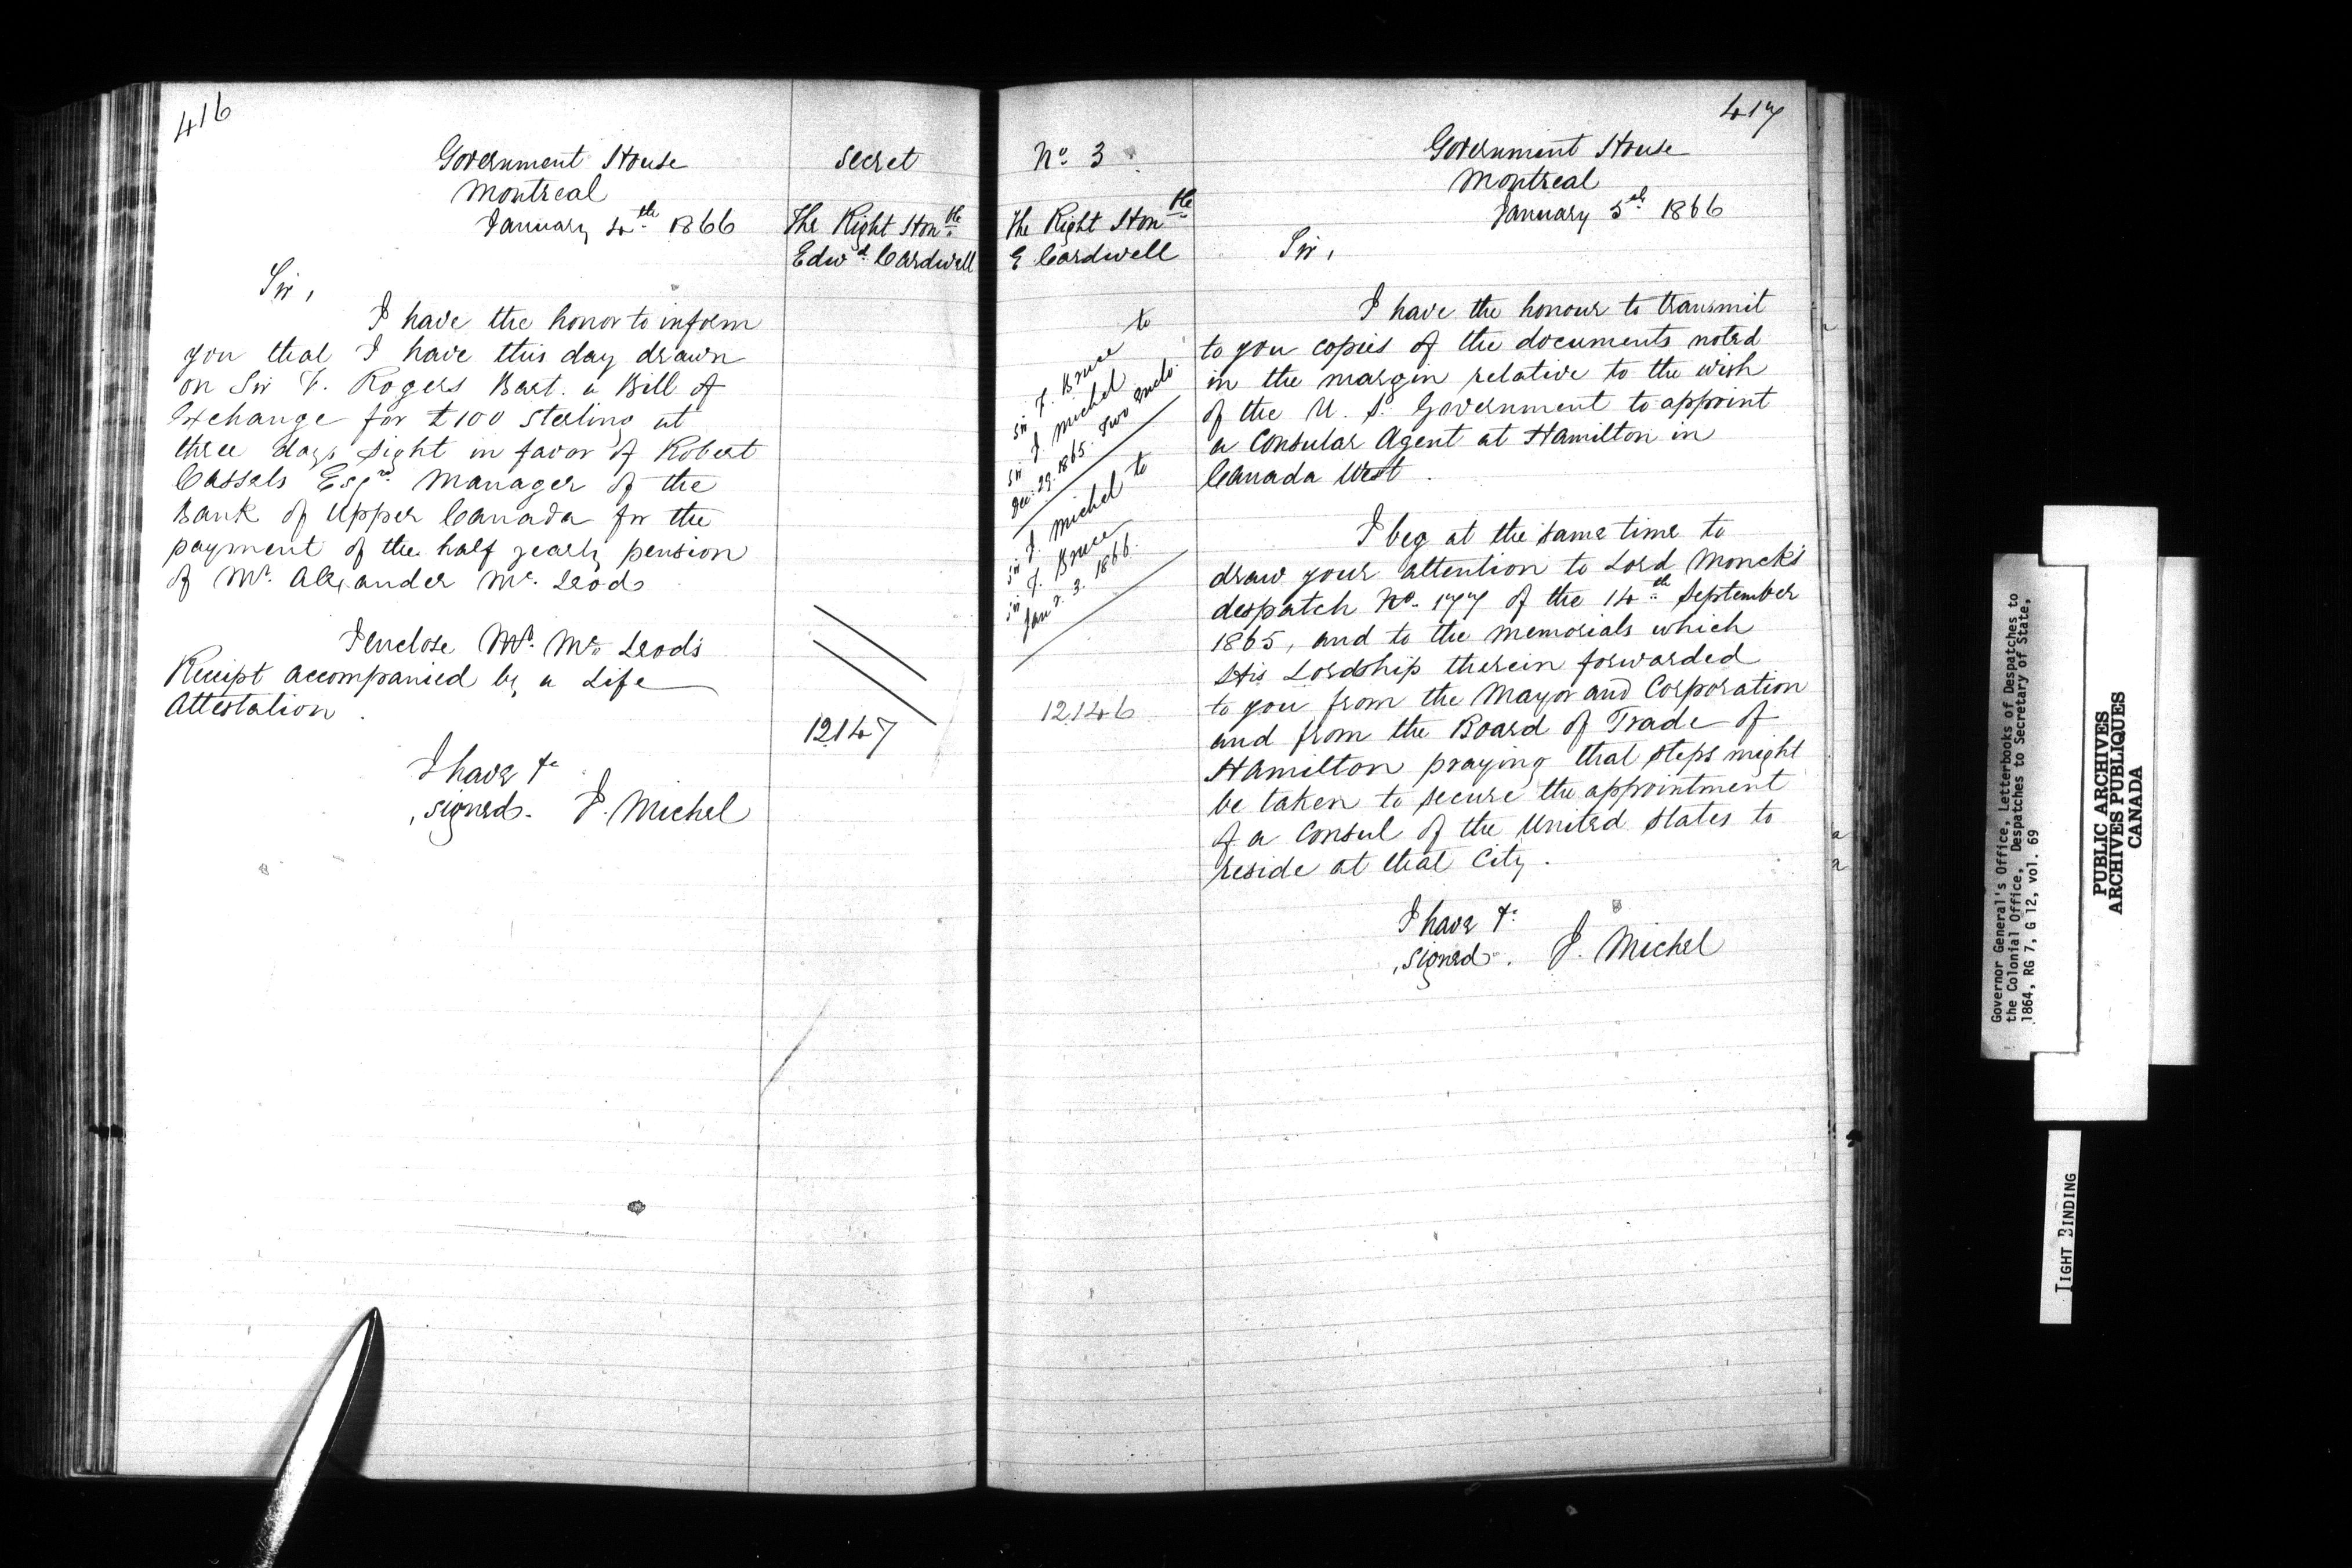 416
Government House
Montreal
January 4th 1866
Secret
The Right Honble
Edwd Cardwell
Sir,
I have the honor to inform
you that I have this day drawn
on Sir F. Rogers Bart. a Bill of
Exchange for £100 Sterling at
three days sight in favor of Robert
Cassels Esqre Manager of the
Bank of Upper Canada for the
payment of the half yearly pension
of Mr. Alexander Mc. Leod
I enclose Mr. Mc. Leod's
Receipt accompanied by a Life
Attestation.
12147
I have &c
signed. J. Michel
417
No. 3
The Right Honble
E Cardwell
Government House
Montreal
January 5th 1866
Sir,
Sir F. Bruce to
Sir J. Michel
Dec. 29. 1865. Two Enclo.
Sir J. Michel to
Sir F. Bruce
Jany. 3. 1866.
12146
I have the honour to transmit
to you copies of the documents noted
in the margin relative to the wish
of the U. S. Government to appoint
a Consular Agent at Hamilton in
Canada West.
I beg at the same time to
draw your attention to Lord Monck's
despatch No. 177 of the 14th September
1865, and to the memorials which
His Lordship therein forwarded
to you from the Mayor and Corporation
and from the Board of Trade of
Hamilton praying that steps might
be taken to secure the appointment
of a Consul of the United States to
reside at that City.
I have &c
signed. J. Michel
Governor General's Office, Letterbooks of Despatches to
the Colonial Office, Despatches to Secretary of State,
1864, RG 7, G 12, vol. 69
PUBLIC ARCHIVES
ARCHIVES PUBLIQUES
CANADA
TIGHT BINDING